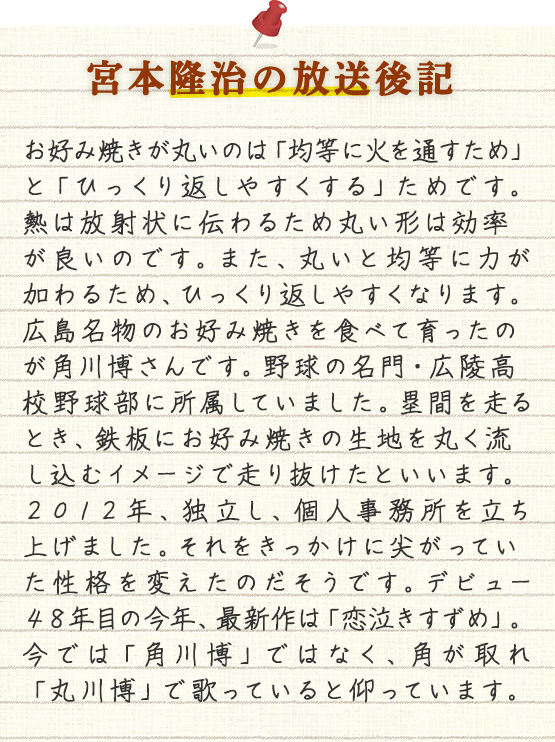 宮本隆治の放送後記
お好み焼きが丸いのは「均等に火を通すため」
と「ひっくり返しやすくする」ためです。
熱は放射状に伝わるため丸い形は効率
が良いのです。また、丸いと均等に力が
加わるため、ひっくり返しやすくなります。
広島名物のお好み焼きを食べて育ったの
が角川博さんです。野球の名門・広陵高
校野球部に所属していました。塁間を走る
とき、鉄板にお好み焼きの生地を丸く流
し込むイメージで走り抜けたといいます。
2012年、独立し、個人事務所を立ち
上げました。それをきっかけに尖がってい
た性格を変えたのだそうです。デビュー
48年目の今年、最新作は「恋泣きすずめ」。
今では「角川博」ではなく、角が取れ
「丸川博」で歌っていると仰っています。